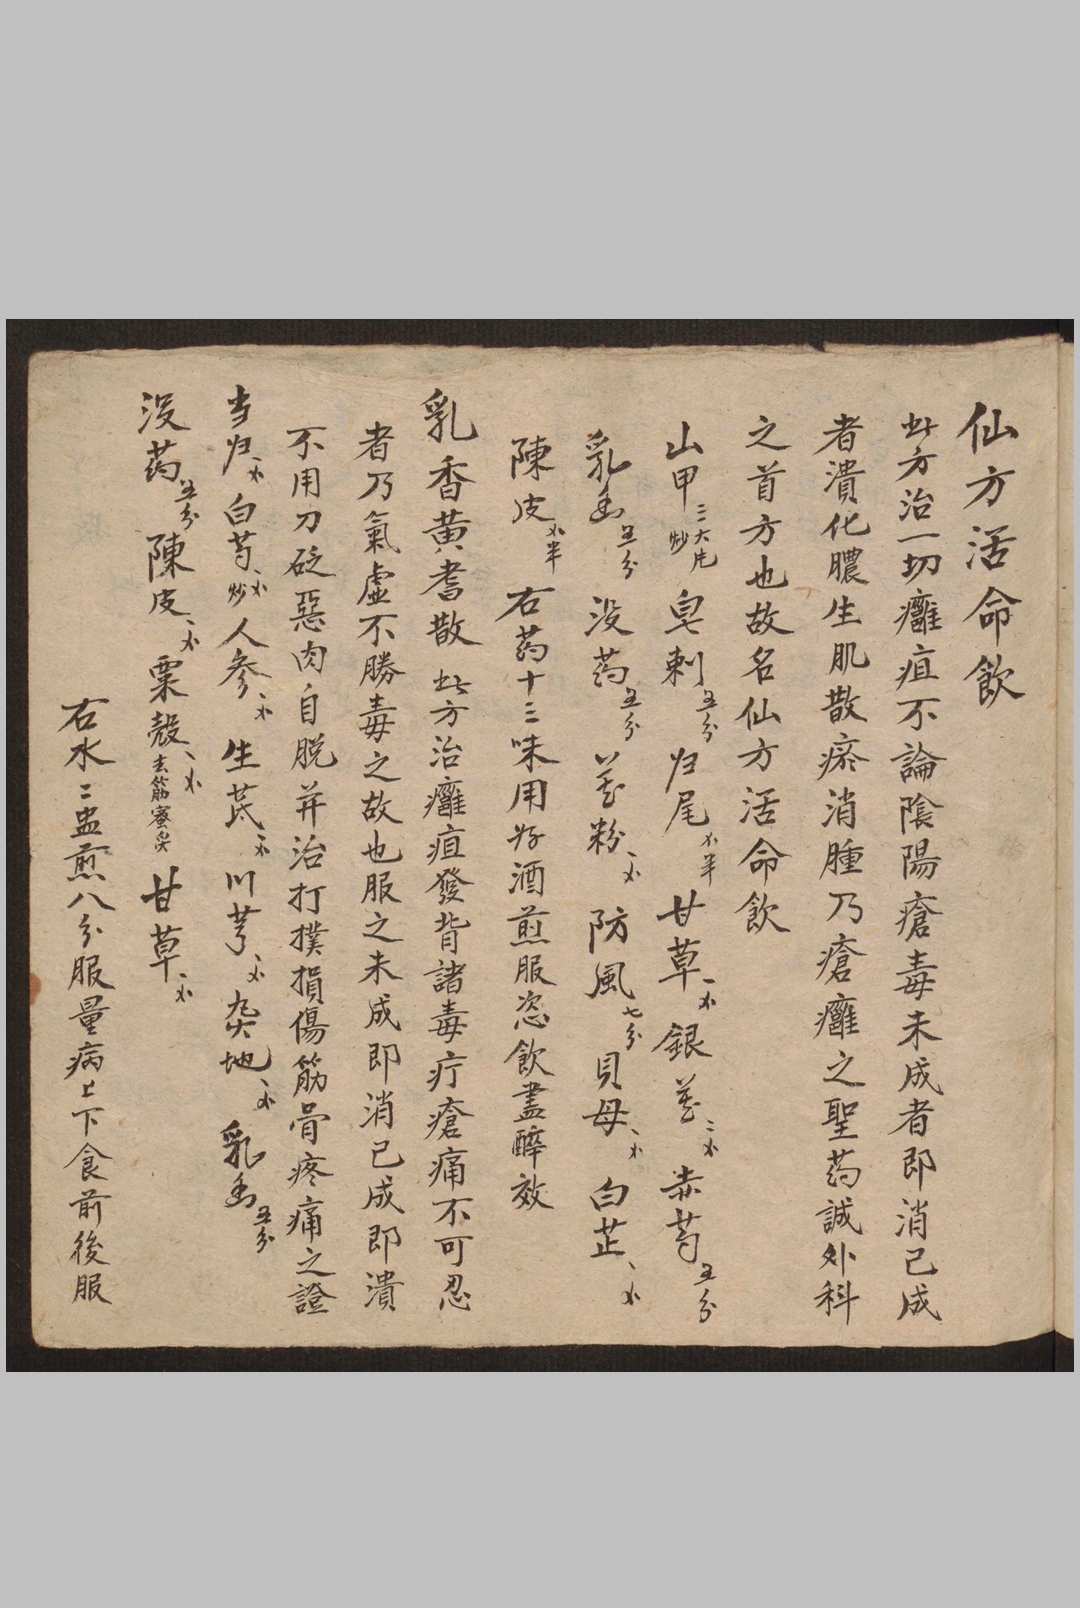 仙方活命飲
此方治一切癰疽不論陰陽瘡毒未成者即消已成
者潰化膿生肌散瘀消腫乃瘡癰之聖药誠外科
之首方也故名仙方活命飲
山甲三大片炒 皂刺五分 归尾半 甘草一 銀花二 赤芍五分
乳香五分 没药五分 花粉一 防風七分 貝母一 白芷一
陳皮半 右药十三味用好酒煎服恣飲盡醉效
乳香黄耆散 此方治癰疽發背諸毒疔瘡痛不可忍
者乃氣虛不勝毒之故也服之未成即消已成即潰
不用刀砭惡肉自脱并治打撲損傷筋骨疼痛之證
当归一 白芍一炒 人参一 生芪一 川芎一 熟地一 乳香五分
没药五分 陳皮一 粟殼一去筋蜜炙 甘草一
右水二盅煎八分服量病上下食前後服